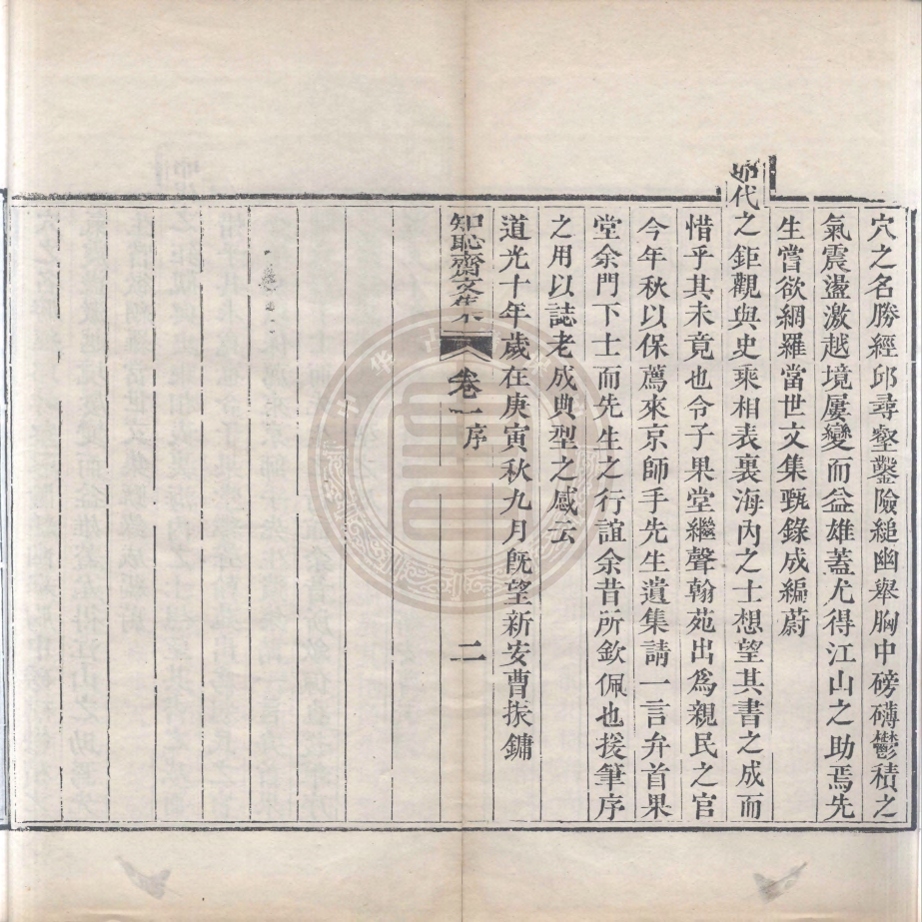 穴之名勝經邱尋壑鑿險縋幽舉胸中磅礴鬱積之
氣震盪激越境屢變而益雄蓋尤得江山之助焉先
生嘗欲網羅當世文集甄錄成編蔚
昭代之鉅觀與史乘相表裏海內之士想望其書之成而
惜乎其未竟也令子果堂繼聲翰苑出爲親民之官
今年秋以保薦來京師手先生遺集請一言弁首果
堂余門下士而先生之行誼余昔所欽佩也援筆序
之用以誌老成典型之感云
道光十年歲在庚寅秋九月旣望新安曹振鏞
知恥齋文集 卷一序 二